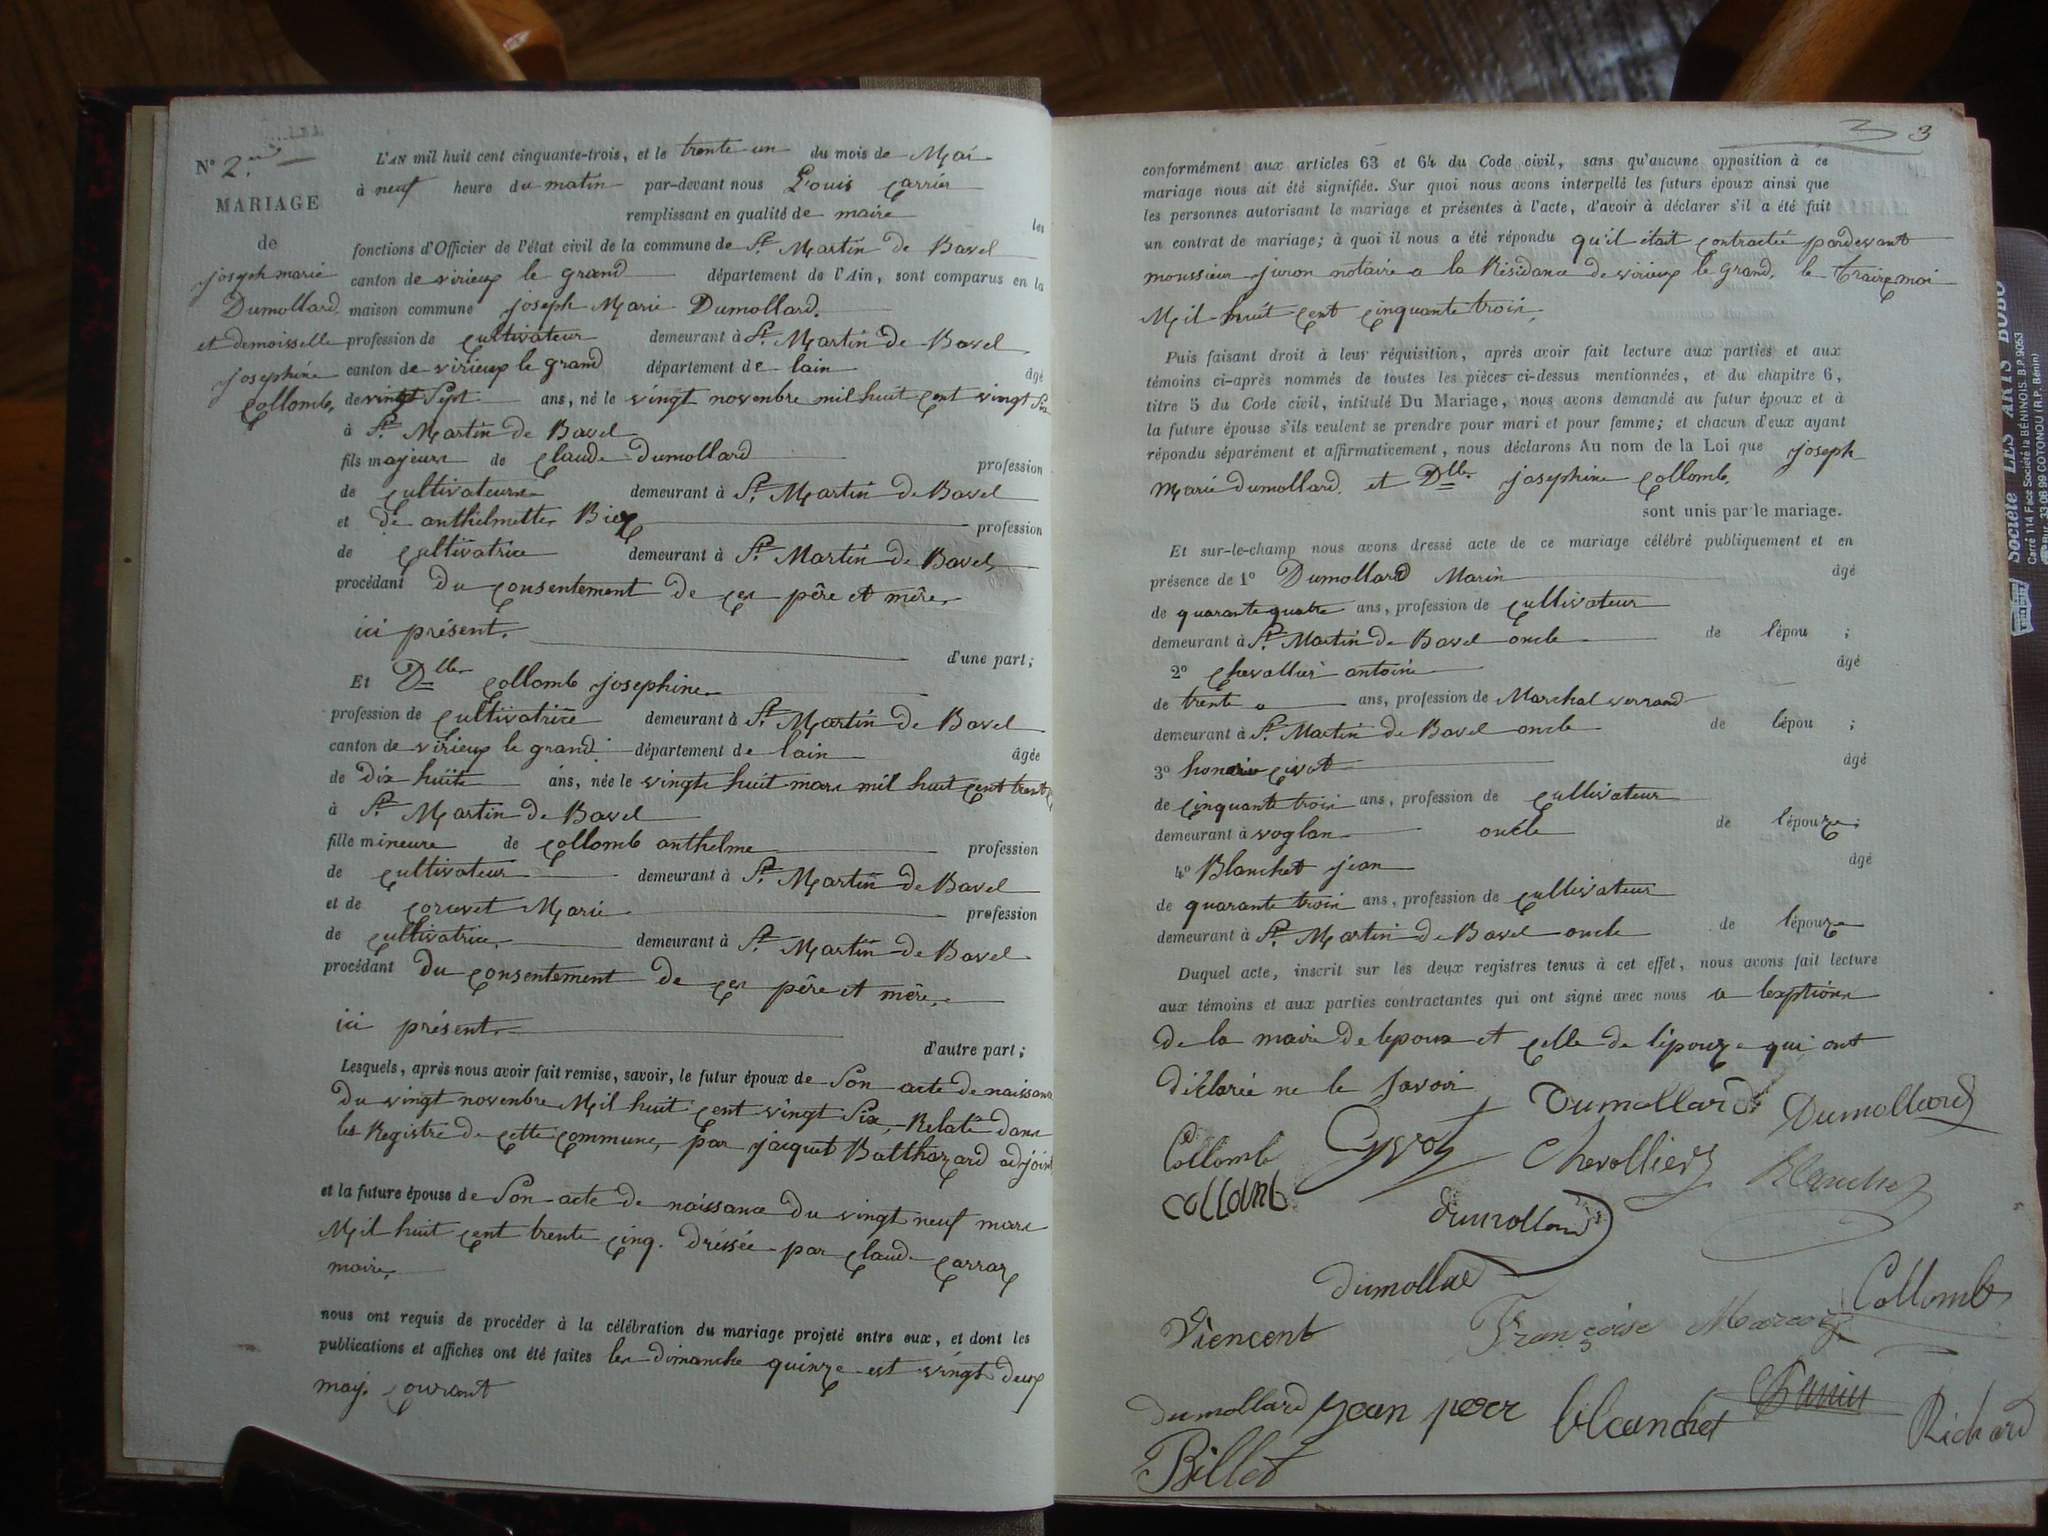 N° 2.
MARIAGE
de
joseph marie
Dumollard
et demoisselle
josephine
Collomb,
L'AN mil huit cent cinquante-trois, et le trente un du mois de Mai
à neuf heure du matin par-devant nous Louis Carrier
remplissant en qualité de maire les
fonctions d'Officier de l'état civil de la commune de St Martin de Bavel
canton de virieux le grand département de l'Ain, sont comparus en la
maison commune joseph Marie Dumollard.
profession de cultivateur demeurant à St Martin de Bavel
canton de virieux le grand département de lain âgé
de vingt Sept ans, né le vingt novembre mil huit cent vingt Six
à St Martin de Bavel
fils majeurs de Claude Dumollard profession
de cultivateur demeurant à St Martin de Bavel
et de anthelmette Biex profession
de cultivatrice demeurant à St Martin de Bavel,
procédant du consentement de ces pêre et mêre,
ici présent. d'une part;
Et Dlle Collomb josephine
profession de cultivatrice demeurant à St Martin de Bavel
canton de virieux le grand département de lain âgée
de dix huite ans, née le vingts huit mars mil huit cent trente
à St Martin de Bavel
fille mineure de Collomb anthelme profession
de cultivateur demeurant à St Martin de Bavel
et de Marie profession
de cultivatrice, demeurant à St Martin de Bavel
procédant du consentement de ces pêre et mêre,
ici présent d'autre part;
Lesquels, après nous avoir fait remise, savoir, le futur époux de Son acte de naissance
du vingt novembre Mil huit cent vingt Six, Relaté dans
les Registre de cette commune, par jacquet Balthazard adjoint
et la future épouse de Son acte de naissance du vingt neuf mars
Mil huit cent trente cinq. dréssée par Claude Carraz
maire,
nous ont requis de procéder à la célébration du mariage projeté entre eux, et dont les
publications et affiches ont été faites les dimanche quinze est vingt deux
may. courant
3 3
conformément aux articles 63 et 64 du Code civil, sans qu'aucune opposition à ce
mariage nous ait été signifiée. Sur quoi nous avons interpellé les futurs époux ainsi que
les personnes autorisant le mariage et présentes à l'acte, d'avoir à déclarer s'il a été fait
un contrat de mariage; à quoi il nous a été répondu qu'il était contractée pardevant
moussieur juron notaire a la Résidance de virieux le grand, le traize mai
Mil huit cent cinquante trois,
Puis faisant droit à leur réquisition, après avoir fait lecture aux parties et aux
témoins ci-après nommés de toutes les pièces ci-dessus mentionnées, et du chapitre 6,
titre 5 du Code civil, intitulé Du Mariage, nous avons demandé au futur époux et à
la future épouse s'ils veulent se prendre pour mari et pour femme; et chacun d'eux ayant
répondu séparément et affirmativement, nous déclarons Au nom de la Loi que joseph
Marie dumollard. et Dlle josephine Collomb,
sont unis par le mariage.
Et sur-le-champ nous avons dressé acte de ce mariage célébré publiquement et en
présence de 1° Dumollard Marin âgé
de quarante quatre ans, profession de cultivateur
demeurant à St Martin de Bavel oncle de lépou ;
2° Chevallier antoine âgé
de trente ans, profession de Marchal verrand
demeurant à St Martin de Bavel oncle de lépou ;
3° âgé
de cinquante trois ans, profession de cultivateur
demeurant à voglan oncle de l'épouze;
4° Blanchet jean âgé
de quarante trois ans, profession de cultivateur
demeurant à St Martin de Bavel oncle de l'épouze
Duquel acte, inscrit sur les deux registres tenus à cet effet, nous avons fait lecture
aux témoins et aux parties contractantes qui ont signé avec nous a lexption
de la maire de lepoux et celle de l'épouze qui ont
diclarée ne le Savoir
Dumollard Dumollard
Collomb Cyvot Chevollier Blanchet
collomb dumollard
dumollard
Collomb
Viencent Françoise
dumollard jean blanchet Carrier Richard
Billet
Société LES ARTS BOBO
Carré 114 Face Société la BÉNINOIS. B.P. 9053
Bur. 33 06 99 COTONOU (R.P. Bénin)